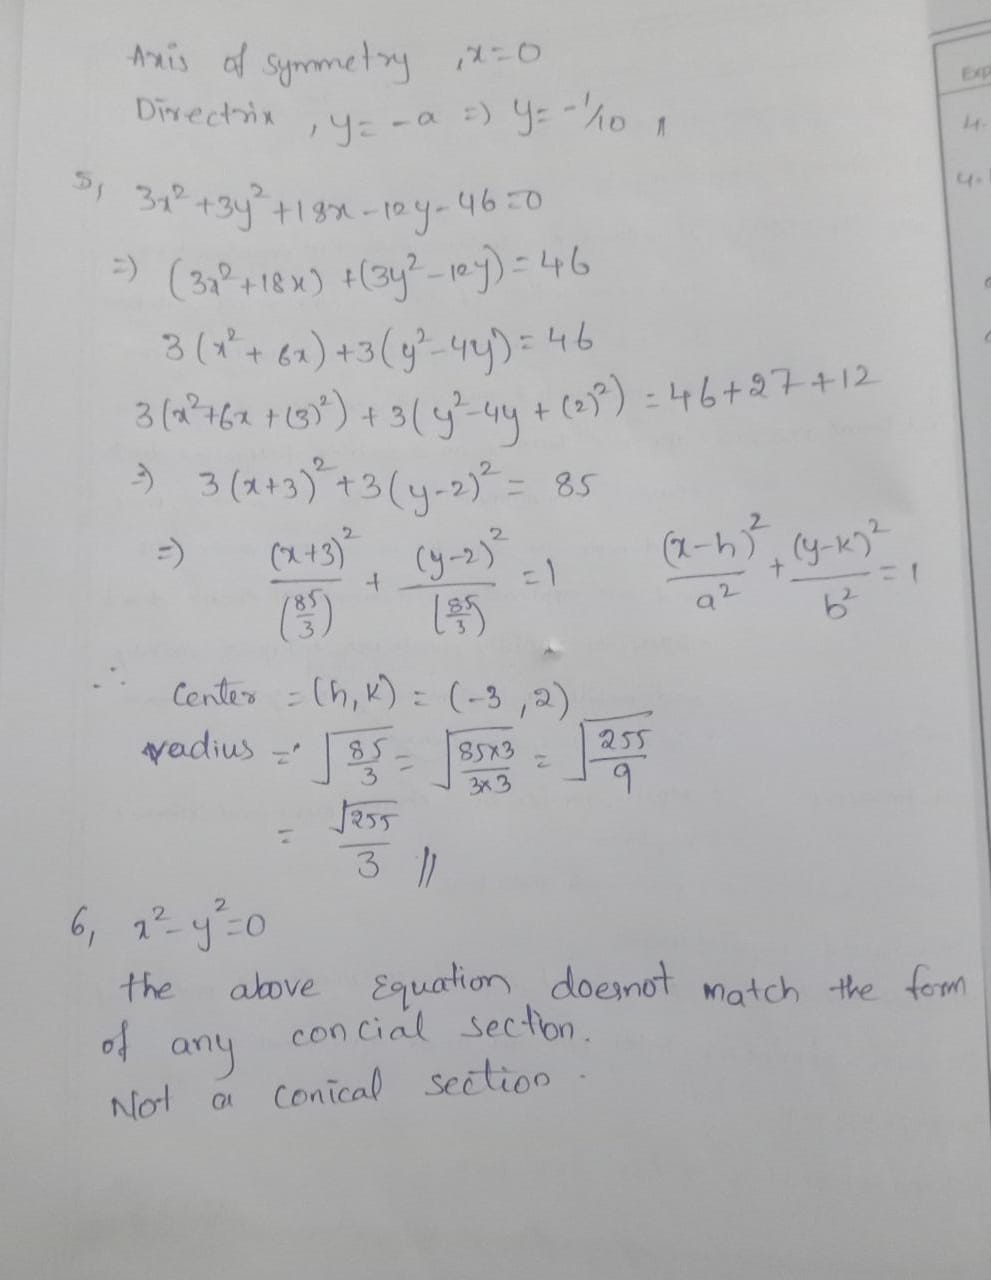 Axis of symmetry , x=0
Directrix , y = -a => y = -1/10 //
5, 3x² + 3y² + 18x - 12y - 46 = 0
=> (3x² + 18x) + (3y² - 12y) = 46
3(x² + 6x) + 3(y² - 4y) = 46
3(x² + 6x + (3)²) + 3(y² - 4y + (2)²) = 46 + 27 + 12
=> 3(x+3)² + 3(y-2)² = 85
=> (x+3)²/(85/3) + (y-2)²/(85/3) = 1 (x-h)²/a² + (y-k)²/b² = 1
∴ Center = (h, k) = (-3, 2)
radius = √(85/3) = √(85x3/3x3) = √(255/9)
= √255/3 //
6, x² - y² = 0
the above Equation doesnot match the form
of any concial section.
Not a conical section.
Exp
4.
4.